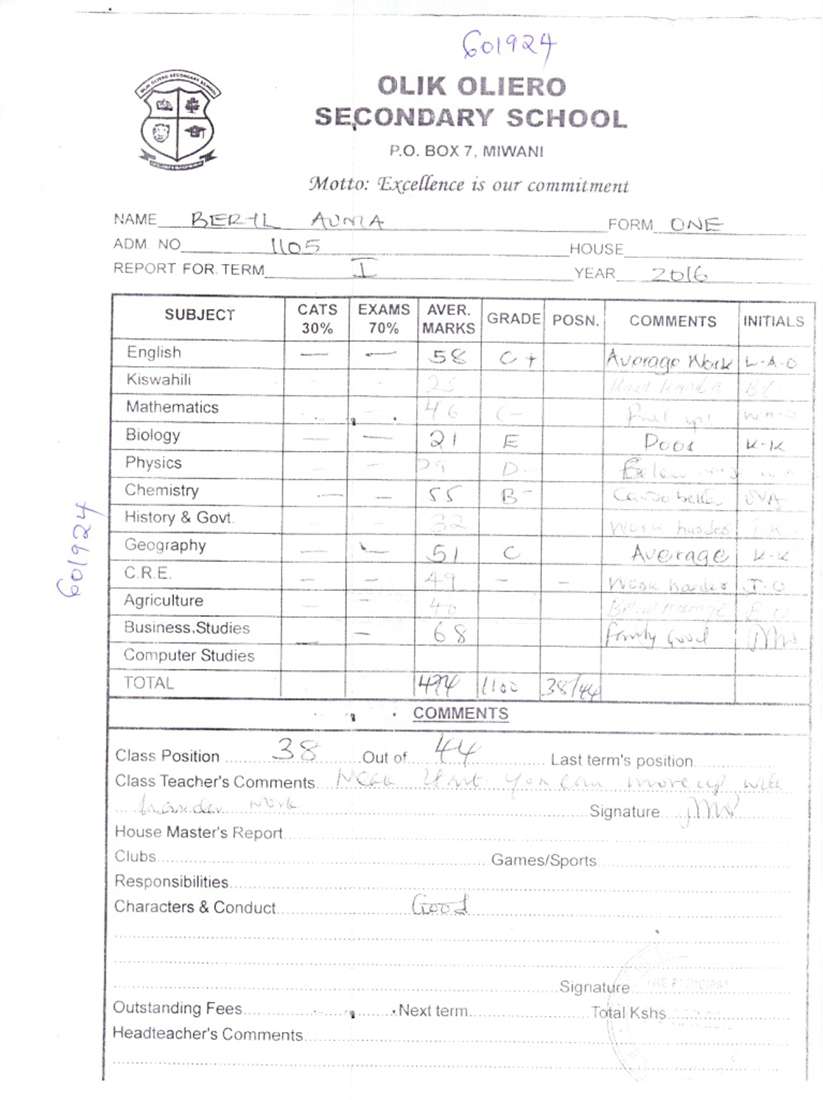 601924
OLIK OLIERO SECONDARY SCHOOL
OLIK OLIERO
SECONDARY SCHOOL
P.O. BOX 7, MIWANI
Motto: Excellence is our commitment
NAME BERYL AUMA FORM ONE
ADM. NO 1105 HOUSE
REPORT FOR TERM I YEAR 2016
SUBJECT CATS 30% EXAMS 70% AVER. MARKS GRADE POSN. COMMENTS INITIALS
English — — 58 C+ Average Work L.A.O
Kiswahili - - 25
Mathematics - - 46 C- Pull up!
Biology — — 21 E Poor K.K
Physics — — 29 D-
Chemistry — — 55 B- Can do better
History & Govt. 32 Work harder
Geography — — 51 C Average K-K
C.R.E. — — 49 - - Work harder J.O
Agriculture — — 40
Business Studies — — 68 Fairly Good
Computer Studies
TOTAL 474 1100 38/44
COMMENTS
601924
Class Position 38 Out of 44 Last term's position
Class Teacher's Comments you can move up with
harder work Signature
House Master's Report
Clubs Games/Sports
Responsibilities
Characters & Conduct Good
Signature
Outstanding Fees Next term Total Kshs
Headteacher's Comments